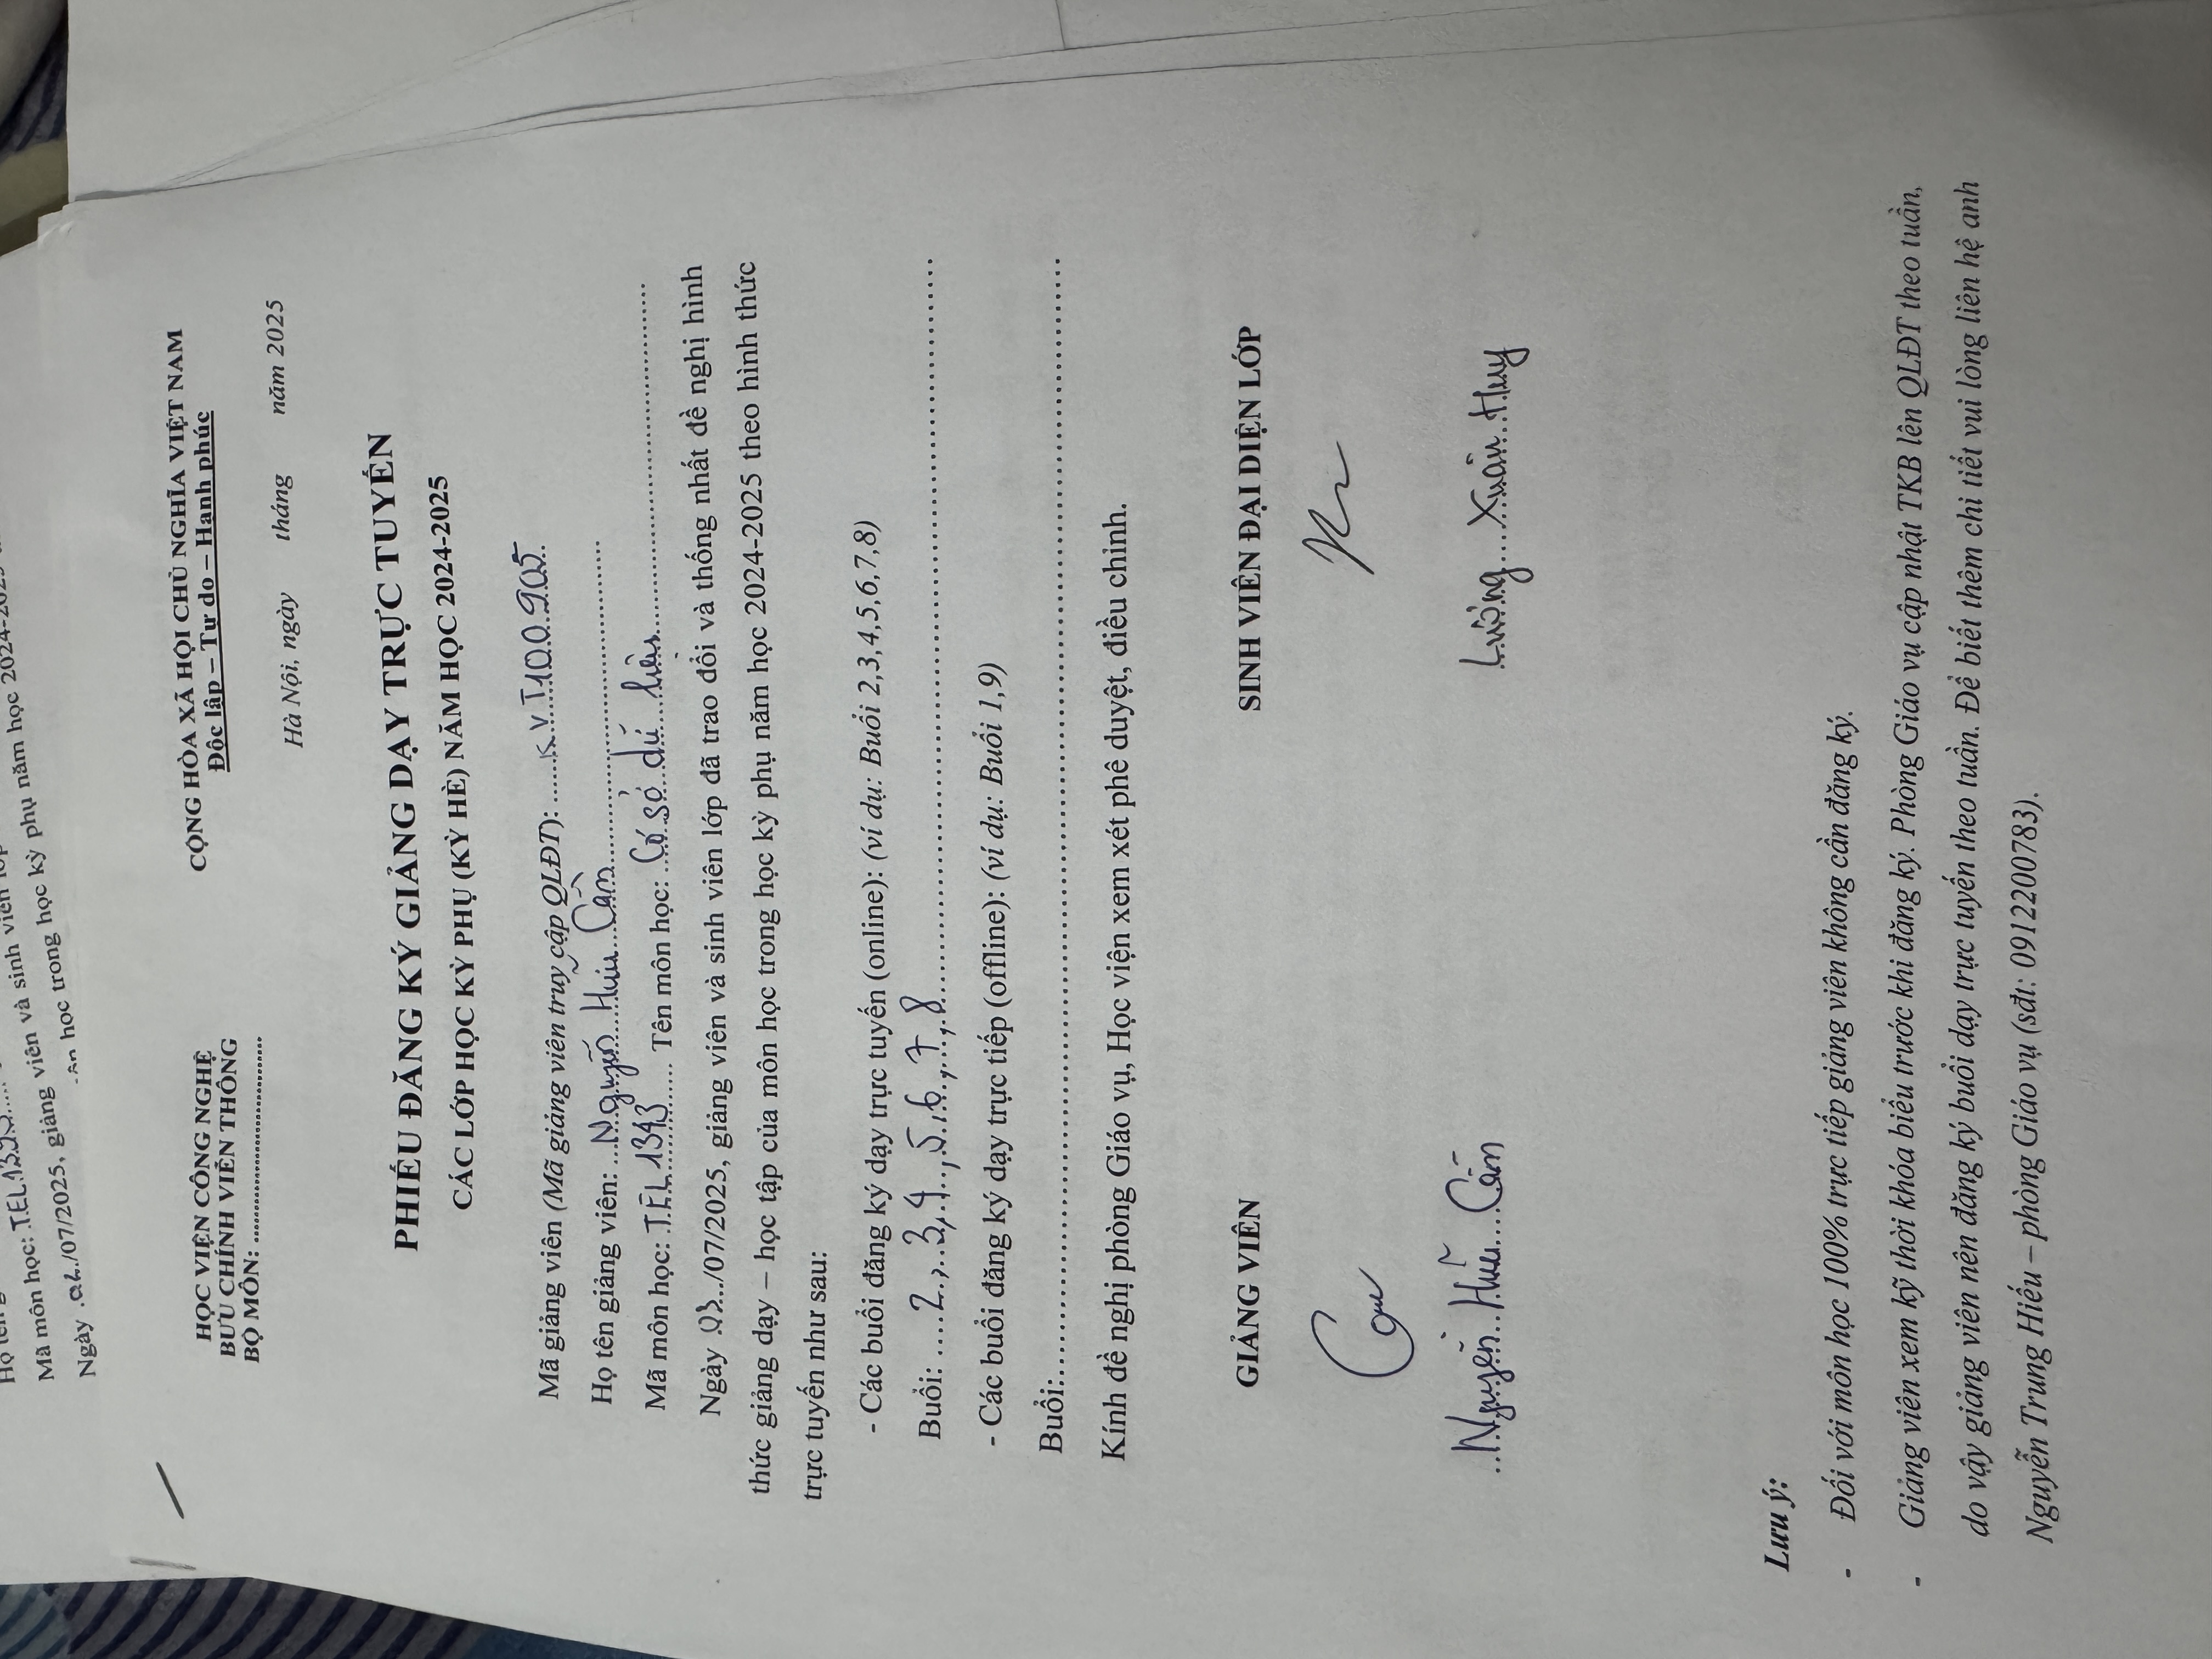 Mã môn học: TEL1343
Ngày .02./07/2025, giảng viên và sinh viên
học trong học kỳ phụ năm học 2024-2025
HỌC VIỆN CÔNG NGHỆ
BƯU CHÍNH VIỄN THÔNG
BỘ MÔN: ..............................
CỘNG HÒA XÃ HỘI CHỦ NGHĨA VIỆT NAM
Độc lập – Tự do – Hạnh phúc
Hà Nội, ngày tháng năm 2025
PHIẾU ĐĂNG KÝ GIẢNG DẠY TRỰC TUYẾN
CÁC LỚP HỌC KỲ PHỤ (KỲ HÈ) NĂM HỌC 2024-2025
Mã giảng viên (Mã giảng viên truy cập QLĐT): KVT100905
Họ tên giảng viên: Nguyễn Hữu Cầm
Mã môn học: TEL1343 Tên môn học: Cơ sở dữ liệu
Ngày .03../07/2025, giảng viên và sinh viên lớp đã trao đổi và thống nhất đề nghị hình
thức giảng dạy – học tập của môn học trong học kỳ phụ năm học 2024-2025 theo hình thức
trực tuyến như sau:
- Các buổi đăng ký dạy trực tuyến (online): (ví dụ: Buổi 2,3,4,5,6,7,8)
Buổi: 2, 3, 4, 5, 6, 7, 8
- Các buổi đăng ký dạy trực tiếp (offline): (ví dụ: Buổi 1,9)
Buổi:..............................
Kính đề nghị phòng Giáo vụ, Học viện xem xét phê duyệt, điều chỉnh.
GIẢNG VIÊN SINH VIÊN ĐẠI DIỆN LỚP
Nguyễn Hữu Cầm Lương Xuân Huy
Lưu ý:
- Đối với môn học 100% trực tiếp giảng viên không cần đăng ký.
- Giảng viên xem kỹ thời khóa biểu trước khi đăng ký. Phòng Giáo vụ cập nhật TKB lên QLĐT theo tuần,
do vậy giảng viên nên đăng ký buổi dạy trực tuyến theo tuần. Để biết thêm chi tiết vui lòng liên hệ anh
Nguyễn Trung Hiếu – phòng Giáo vụ (sđt: 0912200783).